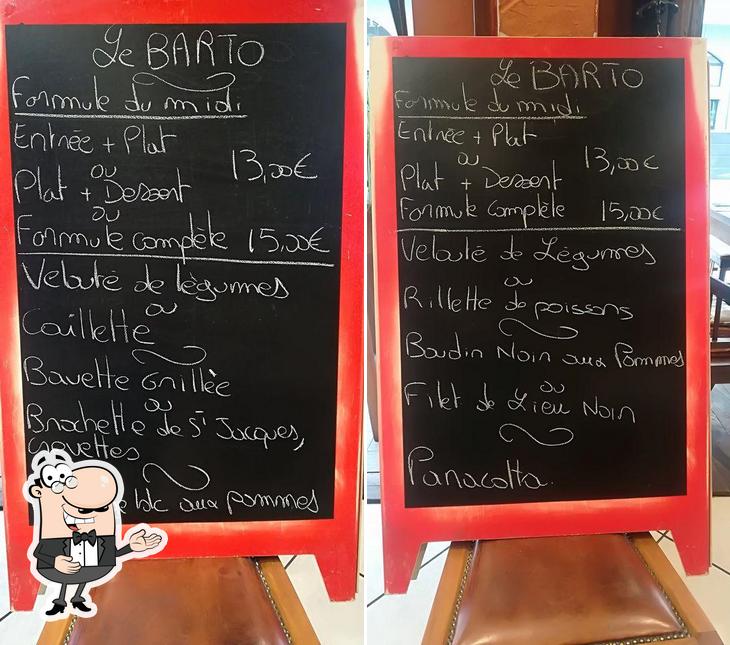 Le BARTO
Formule du midi
Entrée + Plat
ou
13,00€
Plat + Dessert
ou
Formule complète 15,00€
Velouté de légumes
ou
Caillette
Bavette Grillée
ou
Brochette de St Jacques,
Crevettes
blc aux pommes
Le BARTO
Formule du midi
Entrée + Plat
ou
13,00€
Plat + Dessert
Formule complète 15,00€
Velouté de Légumes
ou
Rillette de poissons
Boudin Noir aux Pommes
ou
Filet de Lieu Noir
Panacotta.